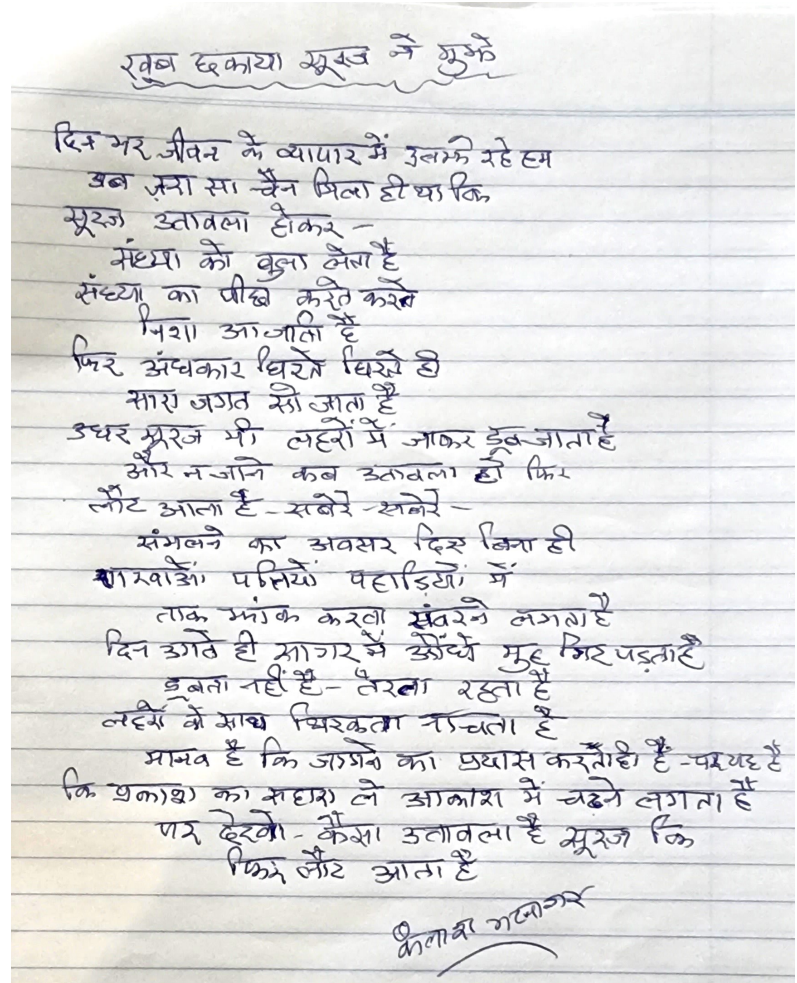 खूब छकाया सूरज ने मुझे
दिन भर जीवन के व्यापार में उलझे रहे हम
अब ज़रा सा चैन मिला ही था कि
सूरज उतावला होकर -
संध्या को बुला लेता है
संध्या का पीछा करते करते
निशा आ जाती है
फिर अंधकार घिरते घिरते ही
सारा जगत सो जाता है
उधर सूरज भी लहरों में जाकर डूब जाता है
और न जाने कब उतावला हो फिर
लौट आता है - सबेरे - सबेरे -
संभलने का अवसर दिए बिना ही
शाखाओं पत्तियों पहाड़ियों में
ताक झांक करता संवरने लगता है
दिन उगते ही सागर में औंधे मुह गिर पड़ता है
डूबता नहीं है - तैरता रहता है
लहरों के साथ थिरकता नाचता है
मानव है कि जागने का प्रयास करता ही है - पर यह है
कि प्रकाश का सहारा ले आकाश में चढने लगता है
पर देखो - कैसा उतावला है सूरज कि
फिर लौट आता है
कैलाश भटनागर